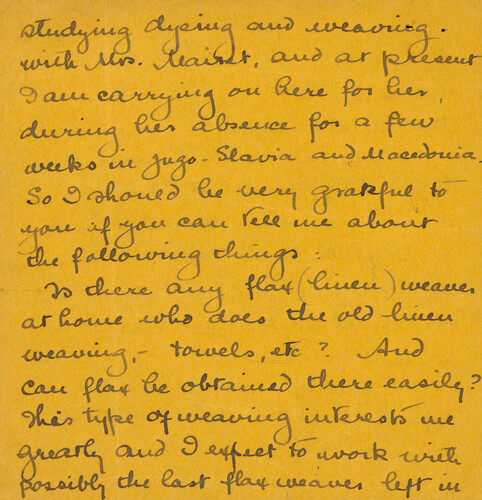 studying dyeing and weaving.
with Mrs. Mairet, and at present
I am carrying on here for her,
during her absence for a few
weeks in Jugo-Slavia and Macedonia.
So I should be very grateful to
you if you can tell me about
the following things:
Is there any flax (linen) weaver
at home who does the old linen
weaving, - towels, etc? And
can flax be obtained there easily?
This type of weaving interests me
greatly and I expect to work with
possibly the last flax weaver left in